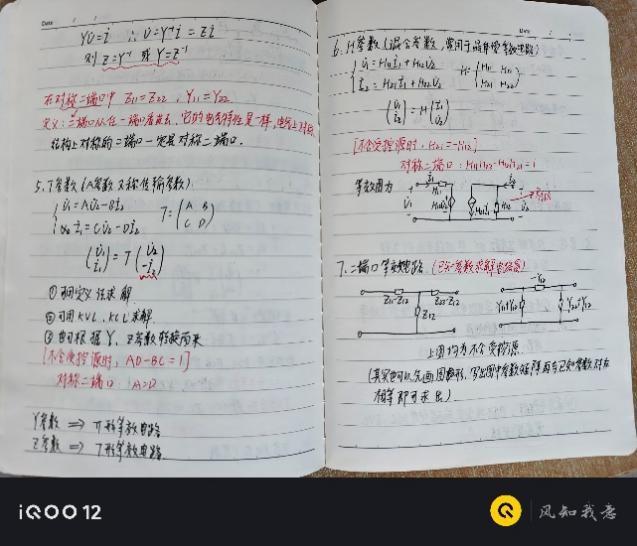 YU̇=i̇ ∴ U̇=Y⁻¹i̇ = Zi̇
则 Z=Y⁻¹ 或 Y=Z⁻¹
在对称二端口中 Z₁₁=Z₂₂，Y₁₁=Y₂₂
定义：二端口从任一端口看进去，它的电气特性是一样，电气上对称
结构上对称的二端口一定是对称二端口.
5. T参数（A参数 又称传输参数）
U̇₁=AU̇₂-Bİ₂
İ₁=CU̇₂-Dİ₂
T=(A B
C D)
(U̇₁
İ₁) = T (U̇₂
-İ₂)
①可用定义法求解.
②可用KVL、KCL求解.
③也可根据 Y、Z参数转换而来
[不含受控源时，AD-BC=1]
对称二端口：A=D
Y参数 ⇒ π形等效电路
Z参数 ⇒ T形等效电路
6. H参数（混合参数，常用于晶体管等效电路）
U̇₁=H₁₁İ₁+H₁₂U̇₂
İ₂=H₂₁İ₁+H₂₂U̇₂
H=(H₁₁ H₁₂
H₂₁ H₂₂)
(U̇₁
İ₂) = H (İ₁
U̇₂)
[不含受控源时，H₂₁=-H₁₂]
对称二端口：H₁₁H₂₂-H₁₂H₂₁=1
等效图为
+ U̇₁ - İ₁ H₁₁ H₁₂U̇₂ H₂₁İ₁ H₂₂ İ₂ + U̇₂ -
7. 二端口等效电路（已知参数求解电路图）
Z₁₁-Z₁₂ Z₂₂-Z₁₂ Z₁₂
-Y₁₂ Y₁₁+Y₁₂ Y₂₂+Y₁₂
上图均为不含受控源.
（其实也可以先画图图形，写出图中参数矩阵再与已知参数对应
相等即可求出）
iQOO 12
风知我意